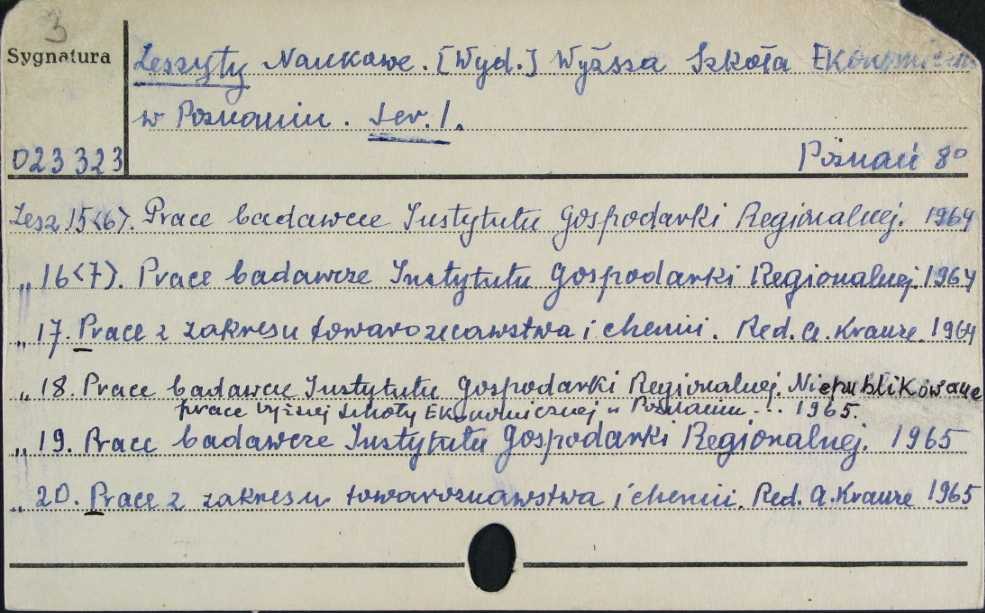 3
Sygnatura
Zeszyty Naukowe. [Wyd.] Wyższa Szkoła Ekonomiczna
w Poznaniu. Ser. I.
023323
Poznań 8°
Zesz 15<6>. Prace badawcze Instytutu Gospodarki Regionalnej. 1964
„ 16<7>. Prace badawcze Instytutu Gospodarki Regionalnej. 1964
„ 17. Prace z zakresu towaroznawstwa i chemii. Red. A. Krauze. 1964
„ 18. Prace badawcze Instytutu Gospodarki Regionalnej. Niepublikowane
prace Wyższej Szkoły Ekonomicznej w Poznaniu... 1965.
„ 19. Prace badawcze Instytutu Gospodarki Regionalnej. 1965
„ 20. Prace z zakresu towaroznawstwa i chemii. Red. A. Krauze 1965